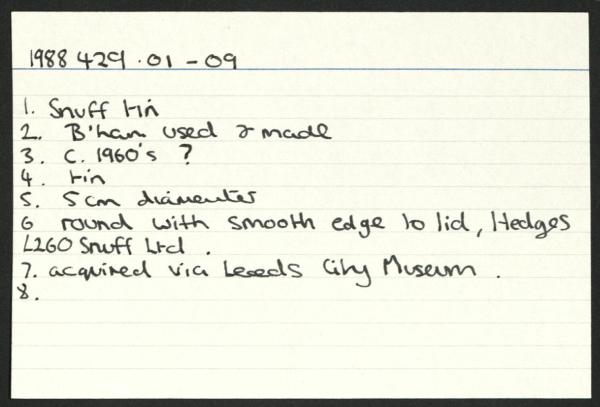 1988 429.01 - 09
1. Snuff tin
2. B'ham used & made
3. C. 1960's ?
4. tin
5. 5cm diameter
6 round with smooth edge to lid, Hedges
L260 Snuff Ltd .
7. acquired via Leeds City Museum .
8.